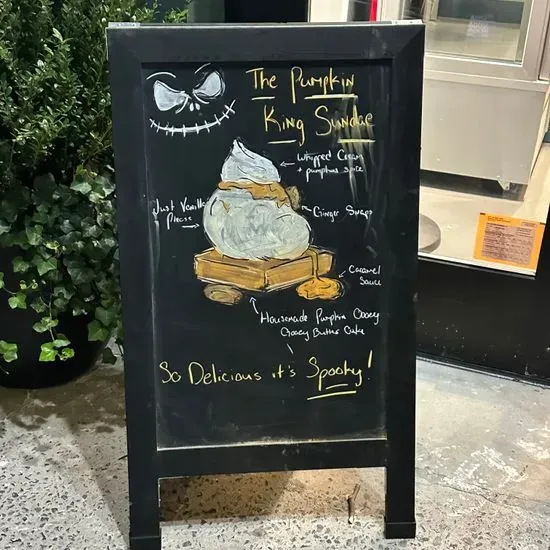 The Pumpkin
King Sundae
Whipped Cream
+ pumpkin spice
Just Vanilla
Please
Ginger Snaps
Caramel
Sauce
Housemade Pumpkin Ooey
Gooey Butter Cake
So Delicious it's Spooky!